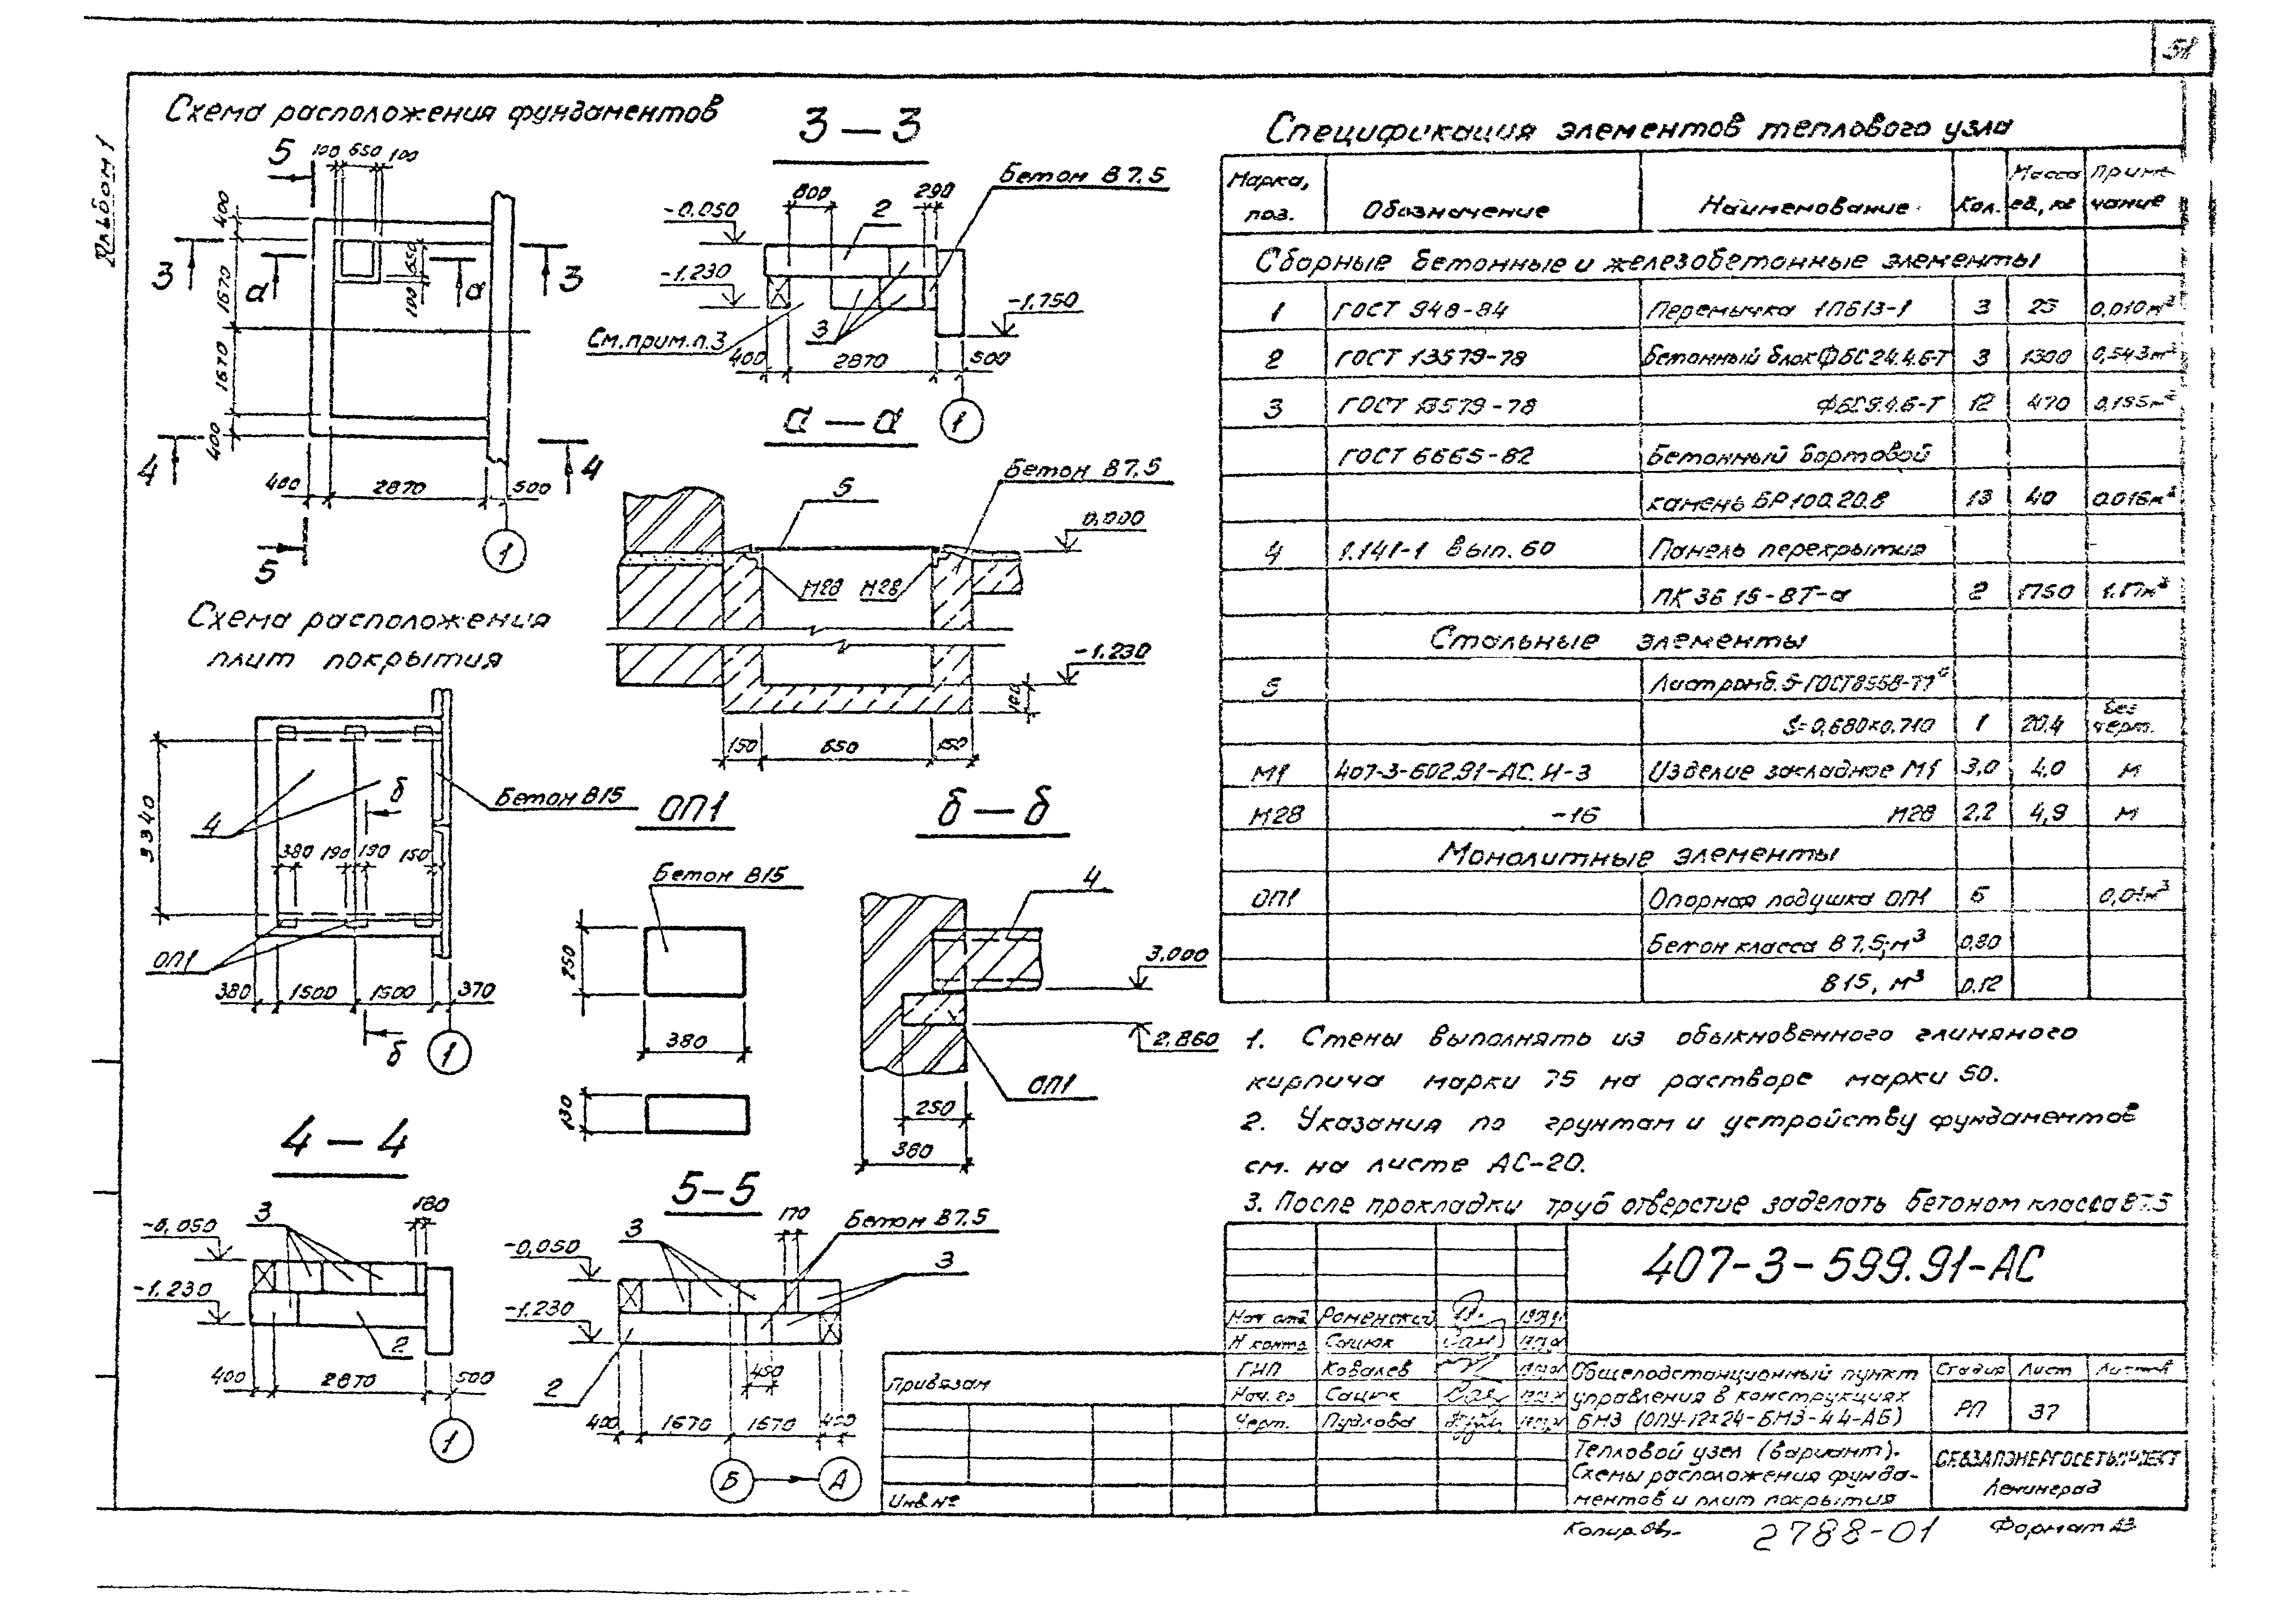 51
Альбом 1
Схема расположения фундаментов
5
100 650 100
400
1670
1670
400
3
а
а
3
650
100
4
4
400 2870 500
1
5
3–3
Бетон В7.5
800
290
-0,050
2
-1.230
-1.750
См.прим.п.3
3
400 2870 500
1
а–а
Бетон В7.5
5
0,000
М28 М28
-1.230
100
150 650 150
Схема расположения
плит покрытия
3340
4
б
Бетон В15
380 190 190 150
ОП1
380 1500 1500 370
б
1
ОП1
Бетон В15
250
380
130
б–б
4
3,000
2,860
ОП1
250
380
4–4
180
3
-0,050
-1,230
2
400 2870 500
1
5–5
170
Бетон В7.5
3
-0,050
3
-1.230
2
450
400 1670 1670 400
Б
А
Спецификация элементов теплового узла
Марка, поз. Обозначение Наименование Кол. Масса ед., кг Примечание
Сборные бетонные и железобетонные элементы
1 ГОСТ 948-84 Перемычка 1ПБ13-1 3 25 0,010м³
2 ГОСТ 13579-78 Бетонный блок ФБС24.4.6-Т 3 1300 0,543м³
3 ГОСТ 13579-78 ФБС9.4.6-Т 12 470 0,195м³
ГОСТ 6665-82 Бетонный бортовой
камень БР100.20.8 13 40 0.016м³
4 1.141-1 Вып. 60 Панель перекрытия
ПК 36 15-8Т-а 2 1750 1.17м³
Стальные элементы
5 Лист ромб. 5 ГОСТ 8568-77
S=0,680×0,710 1 20.4 без черт.
М1 407-3-602.91-АС.И-3 Изделие закладное М1 3,0 4,0 м
М28 -16 М28 2.2 4,9 м
Монолитные элементы
ОП1 Опорная подушка ОП1 6 0,01м³
Бетон класса В7.5, м³ 0,80
В15, м³ 0.12
1. Стены выполнять из обыкновенного глиняного
кирпича марки 75 на растворе марки 50.
2. Указания по грунтам и устройству фундаментов
см. на листе АС-20.
3. После прокладки труб отверстие заделать бетоном класса В7.5
407-3-599.91-АС
Нач. отд. Роменский
Н. контр. Сацюк
ГИП Ковалев
Нач. гр. Сацюк
Черт. Пудлова
Привязан
Инв. №
Общеподстанционный пункт
управления в конструкциях
БМЗ (ОПУ-12×24-БМЗ-44-АБ)
Стадия Лист Листов
РП 37
Тепловой узел (вариант).
Схемы расположения фунда-
ментов и плит покрытия
СЕВЗАПЭНЕРГОСЕТЬПРОЕКТ
Ленинград
Копир.
2788-01
Формат А3